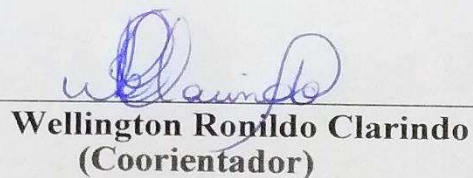 WRClarindo
Wellington Ronildo Clarindo
(Coorientador)